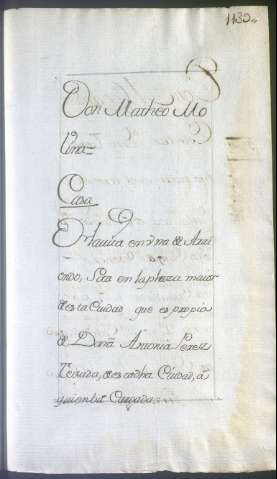 1130
Don Matheo Mo
lina=
Casa
Orlavita en vna de Arri
endo, Sita en la plaza maior
de esta Ciudad, que es propia
de Doña Antonia Perez
Texada, de esta dha Ciudad, á
quien está Cargada